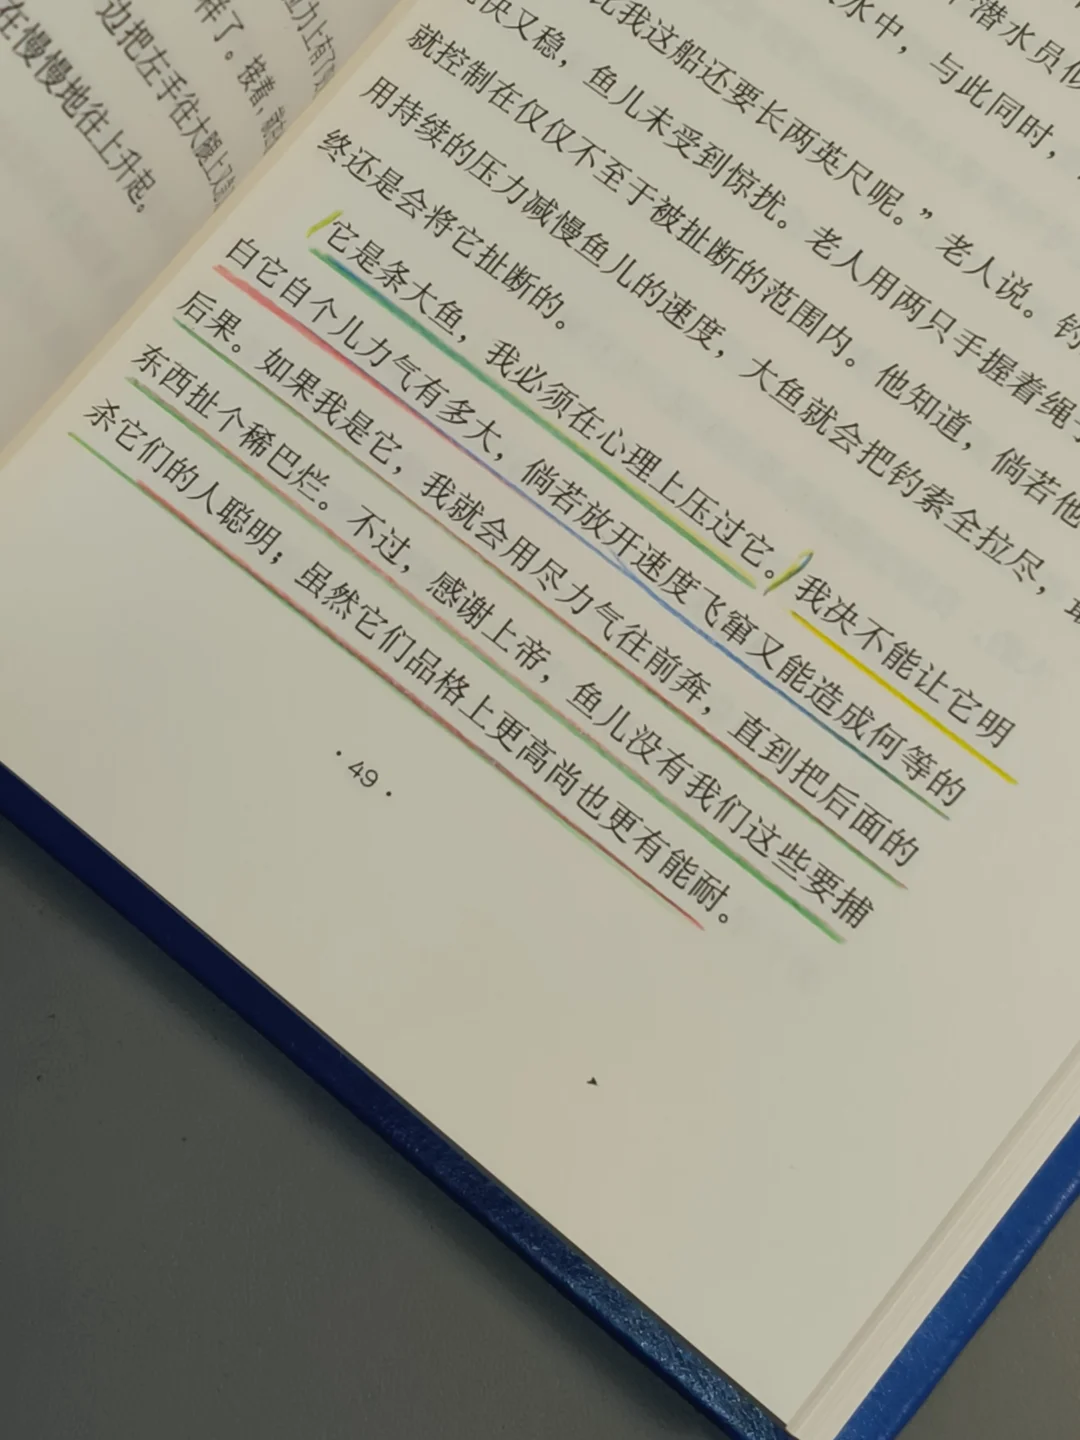 样了。接着，
边把左手往大腿上
在慢慢地往上升起。
潜水员似
水中，与此同时，
比我这船还要长两英尺呢。”老人说。钓
快又稳，鱼儿未受到惊扰。老人用两只手握着绳
就控制在仅仅不至于被扯断的范围内。他知道，倘若他
用持续的压力减慢鱼儿的速度，大鱼就会把钓索全拉尽，最
终还是会将它扯断的。
它是条大鱼，我必须在心理上压过它。我决不能让它明
白它自个儿力气有多大，倘若放开速度飞窜又能造成何等的
后果。如果我是它，我就会用尽力气往前奔，直到把后面的
东西扯个稀巴烂。不过，感谢上帝，鱼儿没有我们这些要捕
杀它们的人聪明；虽然它们品格上更高尚也更有能耐。
·49·